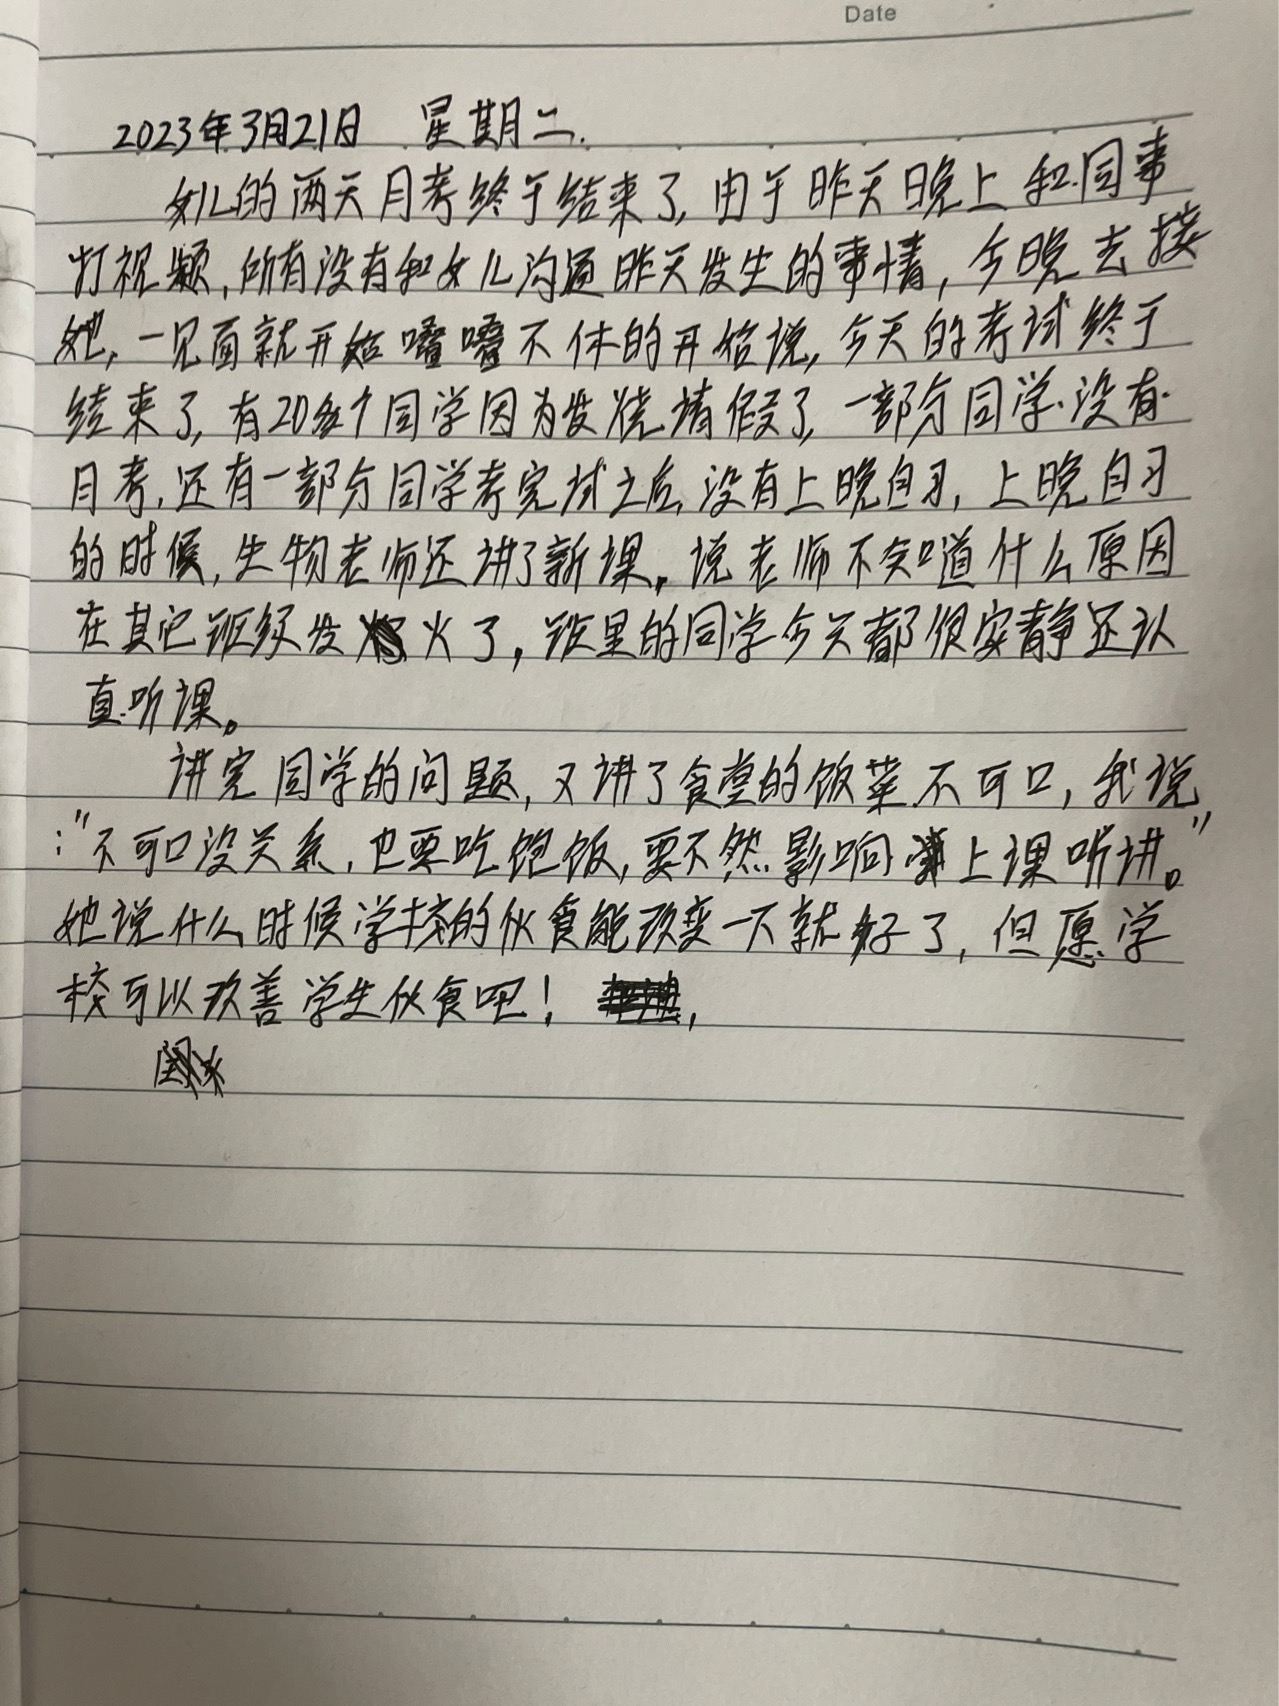 Date
2023年3月21日 星期二.
女儿的两天月考终于结来了,由于昨天晚上和同事
打视频,所有没有和女儿沟通昨天发生的事情,今晚去接
她,一见面就开始嘈嘈不休的开始说,今天的考试终于
结来了,有20多个同学因为发烧请假了,一部分同学没有
月考,还有一部分同学考完试之后,没有上晚自习,上晚自习
的时候,生物老师还讲了新课。说老师不知道什么原因
在其它班级发火了,班里的同学今天都很安静还认
真听课。
讲完同学的问题,又讲了食堂的饭菜不可口,我说
:"不可口没关系,也要吃饱饭,要不然影响上课听讲。"
她说什么时候学校的伙食能改变一下就好了,但愿学
校可以改善学生伙食吧!,